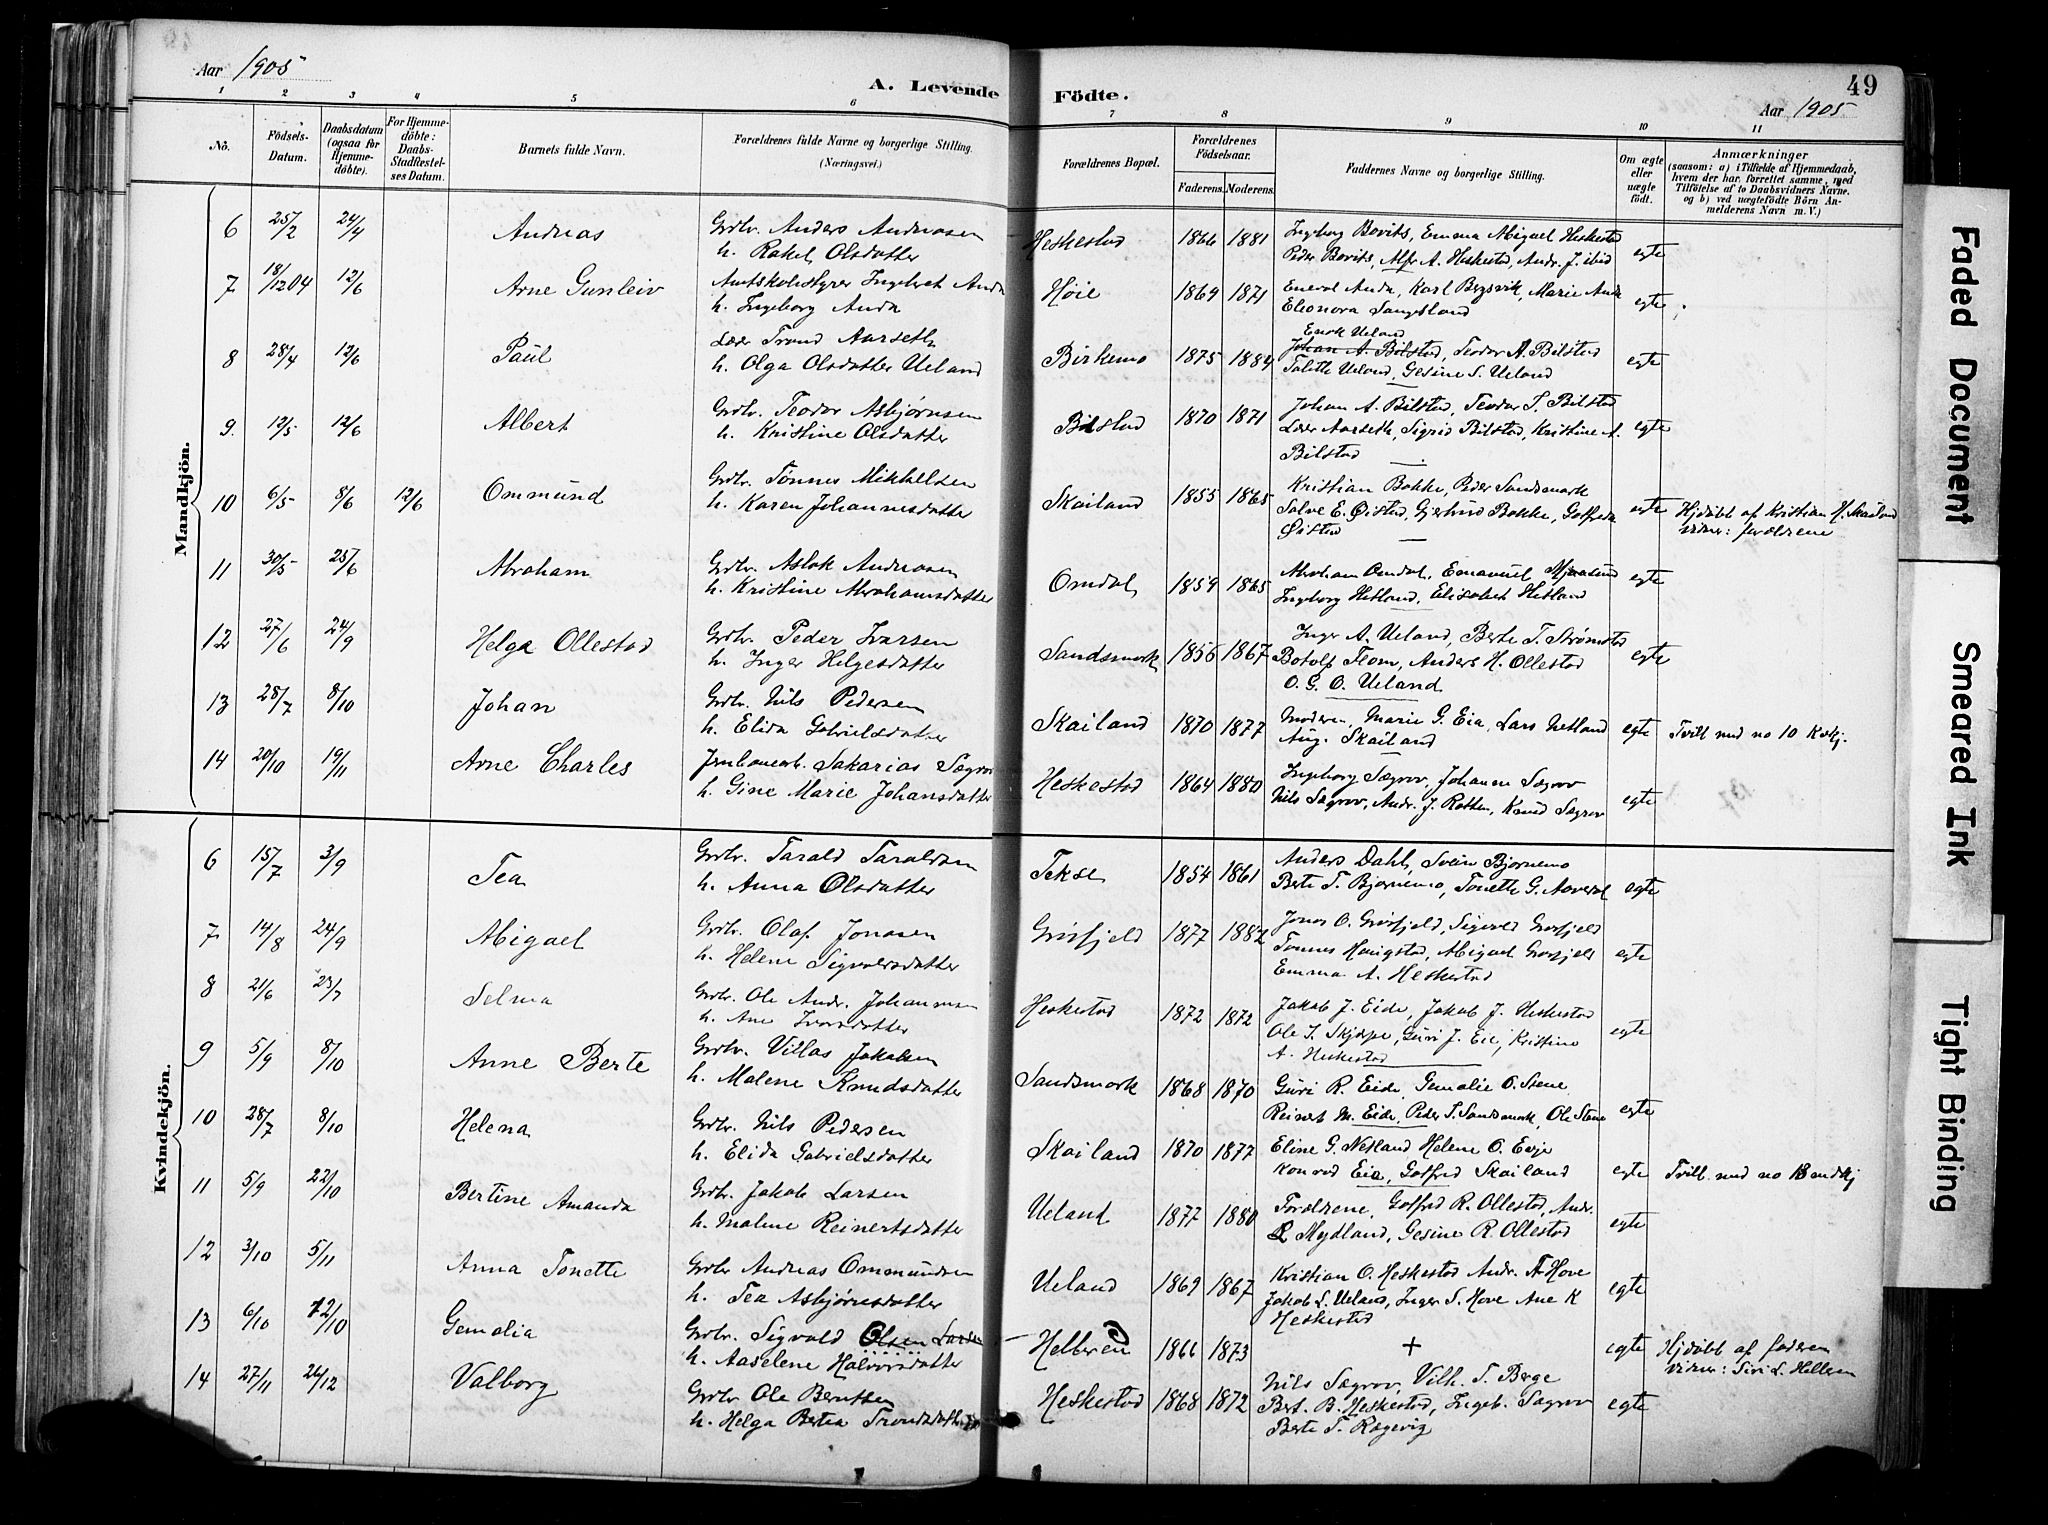 Aar 1905
A. Levende Födte.
49
Aar 1905
1 2 3 4 5 6 7 8 9 10 11
Nô.
Födsels-Datum.
Daabsdatum (ogsaa for Hjemme-döbte).
For Hjemme-döbte: Daabs-Stadfestelses Datum.
Barnets fulde Navn.
Forældrenes fulde Navne og borgerlige Stilling. (Næringsvei.)
Forældrenes Bopæl.
Forældrenes Födselsaar.
Faderens. Moderens.
Faddernes Navne og borgerlige Stilling.
Om ægte eller uægte födt.
Anmærkninger (saasom: a) i Tilfælde af Hjemmedaab, hvem der har forrettet samme, med Tilföielse af to Daabsvidners Navne, og b) ved uægtefödte Börn Anmelderens Navn m. V.)
Mandkjön.
6 25/2 24/4 Andreas Grdbr. Anders Andreasen Heskestad 1866 1881 Ingborg Bovits, Emma Abigael Heskestad egte
h. Rakel Olsdatter Peder Bovits, Alfr A. Heskestad, Andr. J. ibid
7 18/12 04 12/6 Arne Gunleiv Amtskolestyrer Ingebret Anda Höie 1869 1871 Enevol Anda, Karl Bergsvik, Marie Anda egte
h. Ingeborg Anda Eleonora Sangesland
8 28/4 12/6 Paul Lærer Trond Aarseth Birkemo 1875 1884 Enok Ueland
Johan A. Bilstad, Teodor A. Bilstad egte
h. Olga Olsdatter Ueland Talette Ueland, Gesine S. Ueland
9. 12/5 12/6 Albert Grdbr. Teodor Asbjørnsen Bilstad 1870 1871 Johan A. Bilstad, Teodor T. Bilstad egte
h. Kristine Olsdatter Lærer Aarseth, Sigrid Bilstad, Kristine A.
Bilstad
10 6/5 8/6 12/6 Ommund Grdbr. Tønnes Mikkelsen Skailand 1855 1865 Kristian Bakke, Peder Sandsmark egte Hjdöbt af Kristian H. Skailand
h. Karen Johannesdatter Salve E. Øistad, Gjertrud Bakke, Gotfreda vidner: forældrene
Øistad
11 30/5 25/6 Abraham Grdbr. Aslak Andreasen Omdal 1859 1865 Abraham Omdal, Emanuel Mjaasund egte
h. Kristine Abrahamsdatter Ingeborg Hetland, Elisabet Hetland
12 27/6 24/9 Helga Ollestad Grdbr. Peder Ivarsen Sandsmork 1856 1867 Inger A. Ueland, Berte T. Strømstad egte
h. Inger Helgesdatter Botolf Flom, Anders H. Ollestad
O. G. O. Ueland
13 28/7 8/10 Johan Grdbr. Nils Pedersen Skailand 1870 1877 Moderen, Marie G. Eia, Lars Netland egte Tvill. med no 10 Kvkj.
h. Elida Gabrielsdatter Aug. Skailand
14 20/10 19/11 Arne Charles Jernbanearb. Sakarias Sægrov Heskestad 1864 1880 Ingeborg Sægrov, Johanne Sægrov egte
h. Gine Marie Johansdatter Nils Sægrov, Andr. J. Rotten, Knud Sægrov
Kvindekjön.
6 15/7 3/9 Tea Grdbr. Tarald Taraldsen Tekse 1854 1861 Anders Dahl, Svein Bjørnemo egte
h. Anna Olsdatter Berte T. Bjørnemo, Tonette G. Aaverdal
7 14/8 24/9 Abigael Grdbr. Olaf Jonasen Grøsfjeld 1877 1882 Jonas O. Grøsfjeld, Sigvald Grøsfjeld egte
h. Helene Sigvaldsdatter Tønnes Haugstad, Abigael Grøsfjeld
Emma A. Heskestad
8 21/6 23/7 Selma Grdbr. Ole Andr. Johannesen Heskestad 1872 1872 Jakob J. Eide, Jakob J. Heskestad egte
h. Ane Ivarsdatter Ole T. Skjæpe, Guri J. Eie, Kristine
A. Heskestad
9 5/9 8/10 Anne Berte Grdbr. Villas Jakobsen Sandsmork 1868 1870 Guri R. Eide, Gemalie O. Stene egte
h. Malene Knudsdatter Reinert M. Eide, Peder T. Sandsmork, Ole Stene
10 28/7 8/10 Helena Grdbr. Nils Pedersen Skailand 1870 1877 Eline G. Netland Helene O. Eige egte Tvill. med no 13 Mandkj
h. Elida Gabrielsdatter Konrad Eia, Gotfred Skailand
11 5/9 22/10 Bertine Amanda Grdbr. Jakob Larsen Ueland 1877 1880 Foreldrene, Gotfred R. Ollestad, Andr. egte
h. Malene Reinertsdatter L Mydland, Gesine R. Ollestad
12 3/10 5/11 Anna Tonette Grdbr Andreas Ommundsen Ueland 1869 1867 Kristian O. Heskestad Andr. T Hove egte
h. Tea Asbjørnsdatter Jakob L. Ueland, Inger S. Hove Ane K
Heskestad
13 6/10 22/10 Gemalia Grdbr. Sigvald Olsen Larsen Helleren 1866 1873 + egte Hjdöbt af faderen
h. Aaselene Halvorsdatter vidner: Siri L. Helleren
14 27/11 26/12 Valborg Grdbr Ole Berntsen Heskestad 1868 1872 Nils Sægrov, Vilh. T. Berge egte
h. Helga Bertea Trondsdatter Bert. B. Heskestad, Ingeb. Sægrov
Berte T. Rægevig
Faded Document
Smeared Ink
Tight Binding